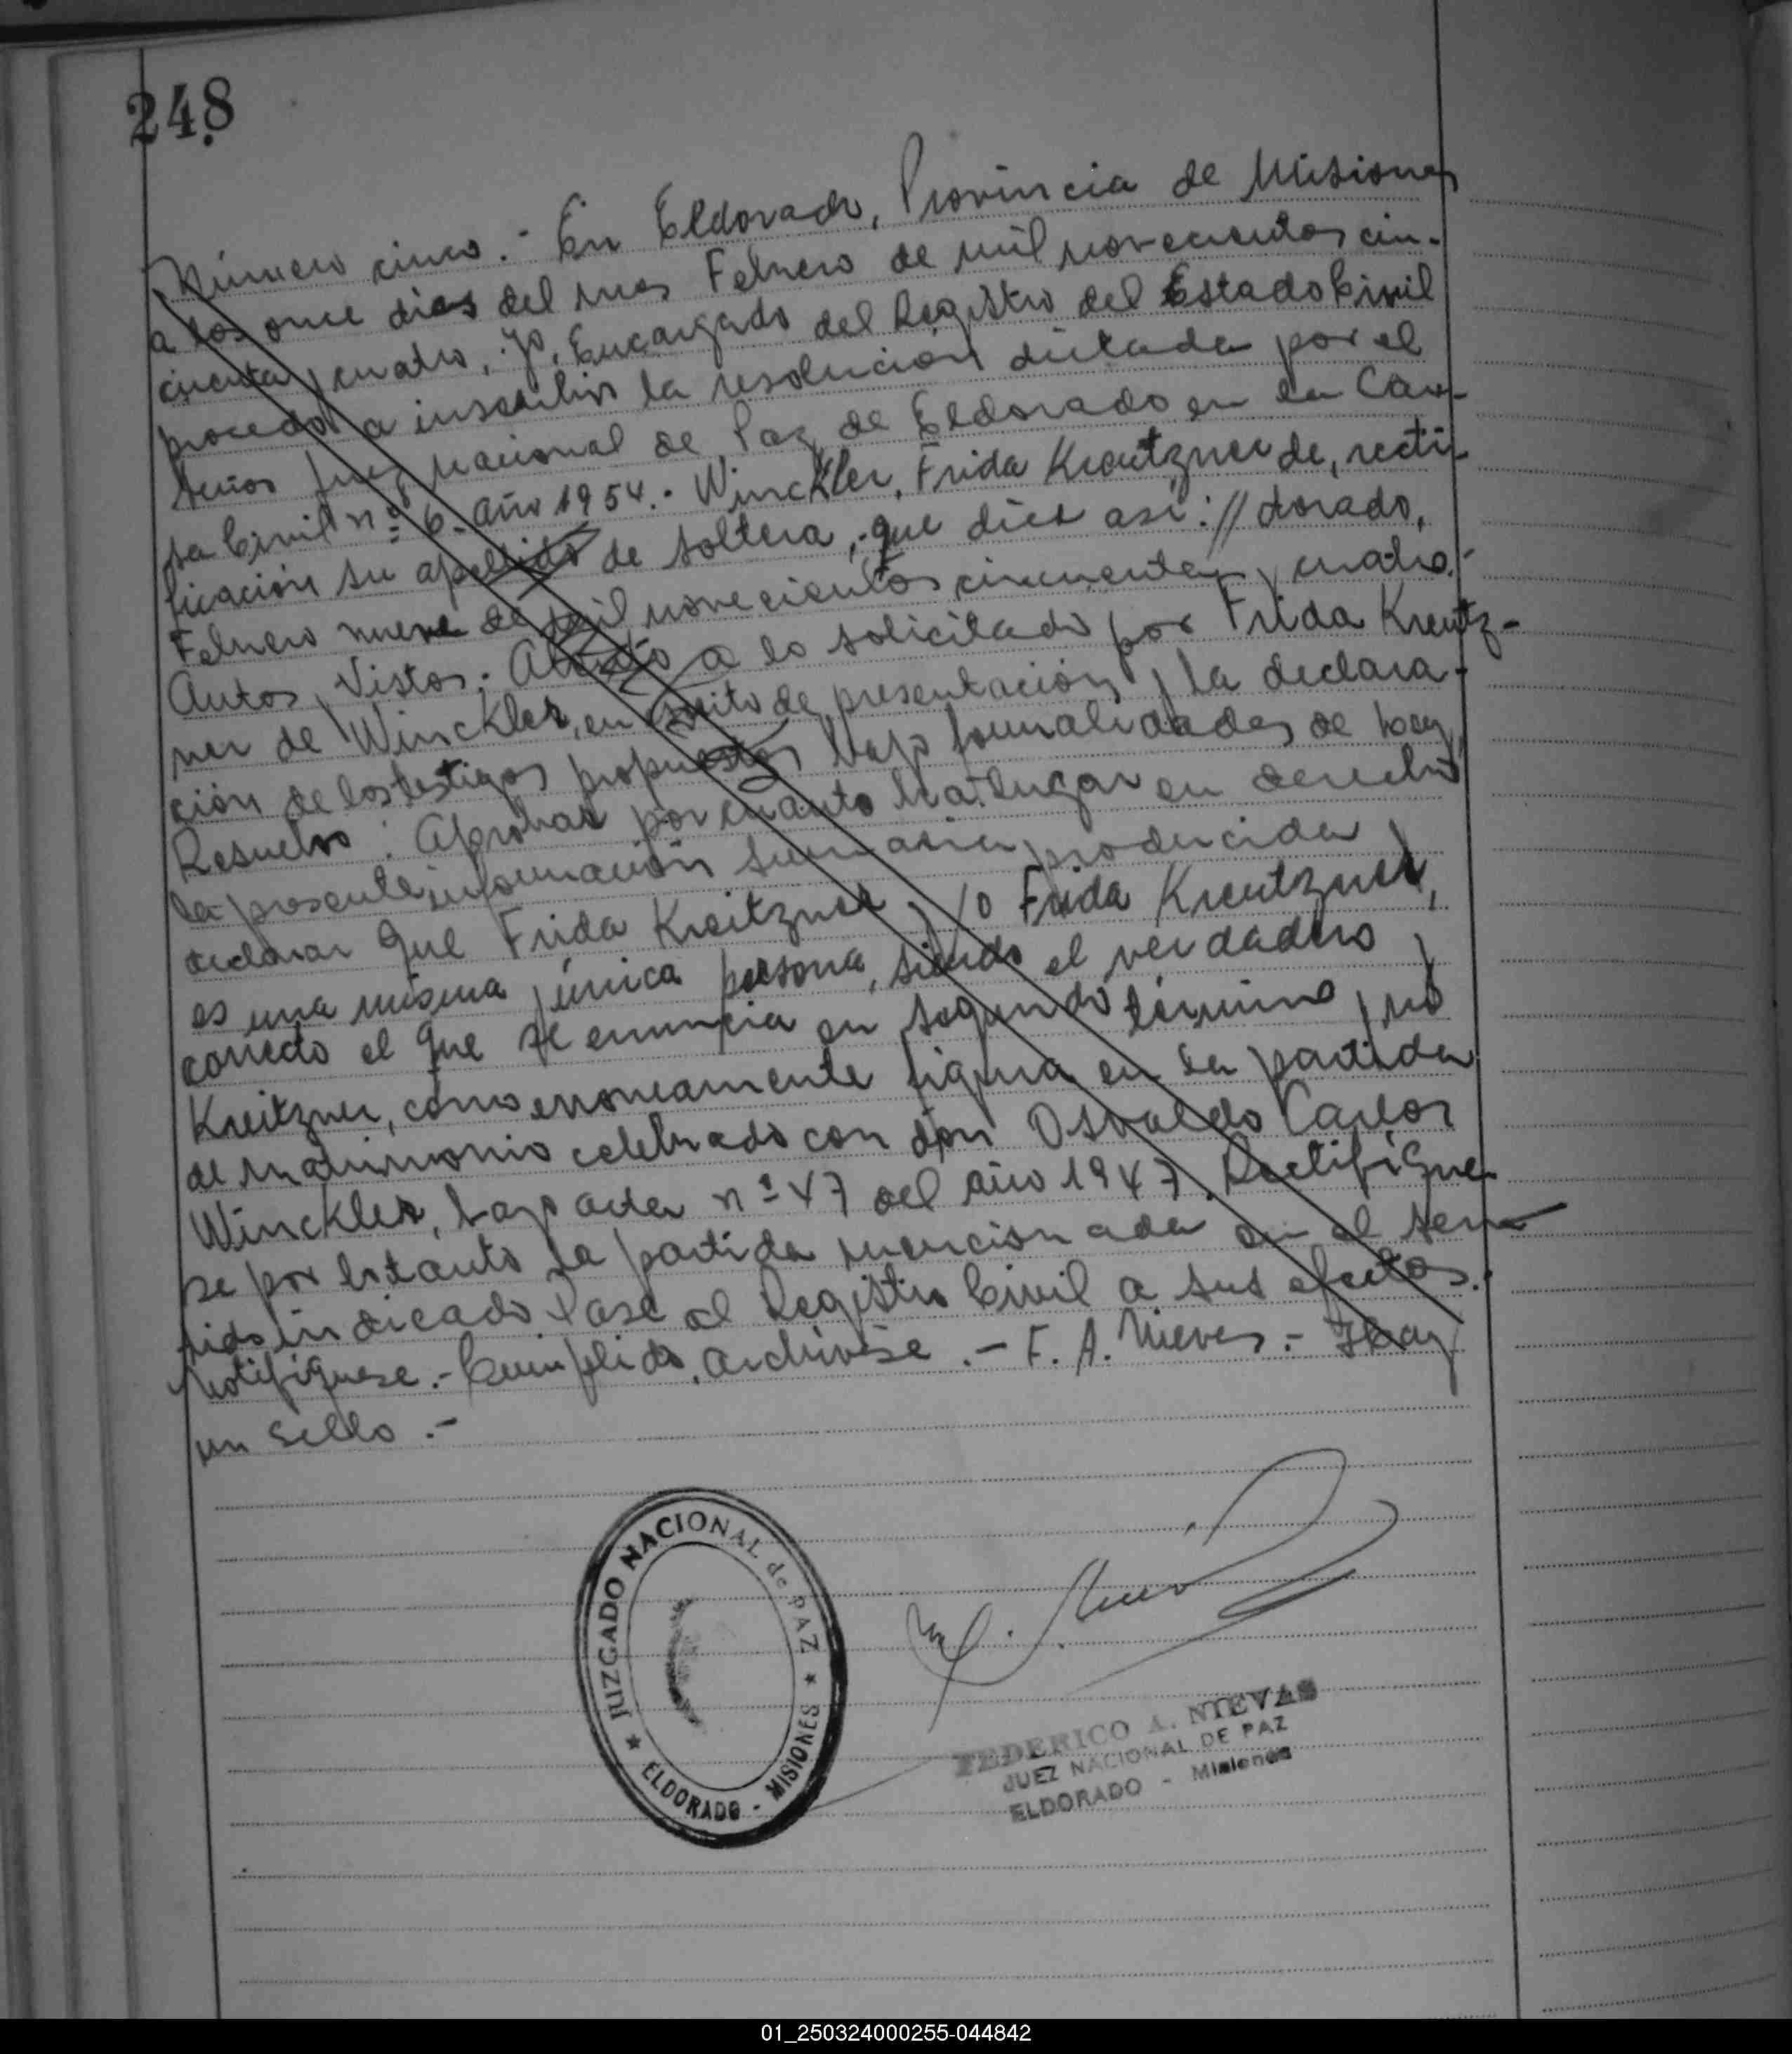 248
Número cinco.- En Eldorado, Provincia de Misiones
a los once dias del mes Febrero de mil novecientos cin-
cuenta y cuatro, yo, Encargado del Registro del Estado Civil
procedo a inscribir la resolución dictada por el
Señor Juez nacional de Paz de Eldorado en la Cau-
sa Civil nº 6. año 1954.- Winckler, Frida Kreutzner de, recti-
ficación su apellido de soltera, que dice así: // dorado,
Febrero nueve de mil novecientos cincuenta y cuatro.-
Autos y Vistos; Atento a lo solicitado por Frida Kreutz-
ner de Winckler, en escrito de presentación y la declara-
ción de los testigos propuestos bajo formalidades de ley,
Resuelvo: Aprobar por cuanto ha lugar en derecho
la presente información sumaria producida y
declarar que Frida Kreitzner y/o Frida Kreutzner,
es una misma y única persona, siendo el verdadero y
correcto el que se enuncia en segundo término y no
Kreitzner, como erroneamente figura en la partida
de matrimonio celebrado con don Osvaldo Carlos
Winckler, bajo acta nº 47 del año 1947. Rectifíque
se por lo tanto la partida mencionada en el sen-
tido indicado Pase al Registro Civil a sus efectos.
Notifíquese.- Cumplido, archívese.- F. A. Nieves.- Hay
un Sello.-
JUZGADO NACIONAL de PAZ
ELDORADO - MISIONES
FEDERICO A. NIEVAS
JUEZ NACIONAL DE PAZ
ELDORADO - Misiones
01_250324000255-044842